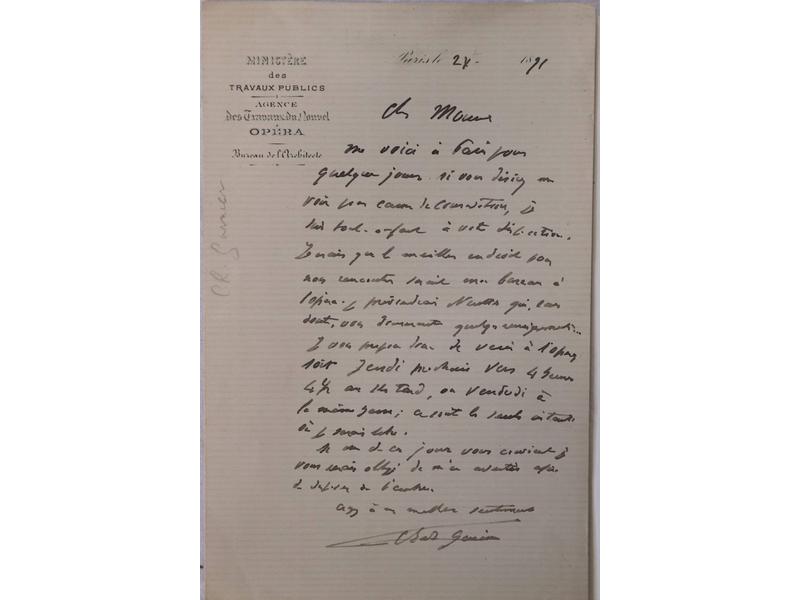 MINISTÈRE
des
TRAVAUX PUBLICS
AGENCE
des Travaux du Nouvel
OPÉRA
Bureau de l'Architecte
Paris, le 24 1891
Ch. Garnier
Cher
me voici à Paris pour
quelques jours. si vous désirez me
voir pour, je
suis tout-à-fait à votre disposition.
Je crois que le meilleur endroit pour
nous rencontrer serait mon bureau à
l'opéra. je Nuitter qui, sans
doute, vous donnerait quelques renseignements...
Je vous propose donc de venir à l'opéra
soit Jeudi prochain vers 4 heures
4 1/2 au plus tard, ou Vendredi à
la même heure; ce sont les seuls instants
où je serais libre.
Si un de ces jours vous convient je
vous serais obligé de m'en avertir afin
de disposer de l'autre.
mes meilleurs sentiments
Ch Garnier